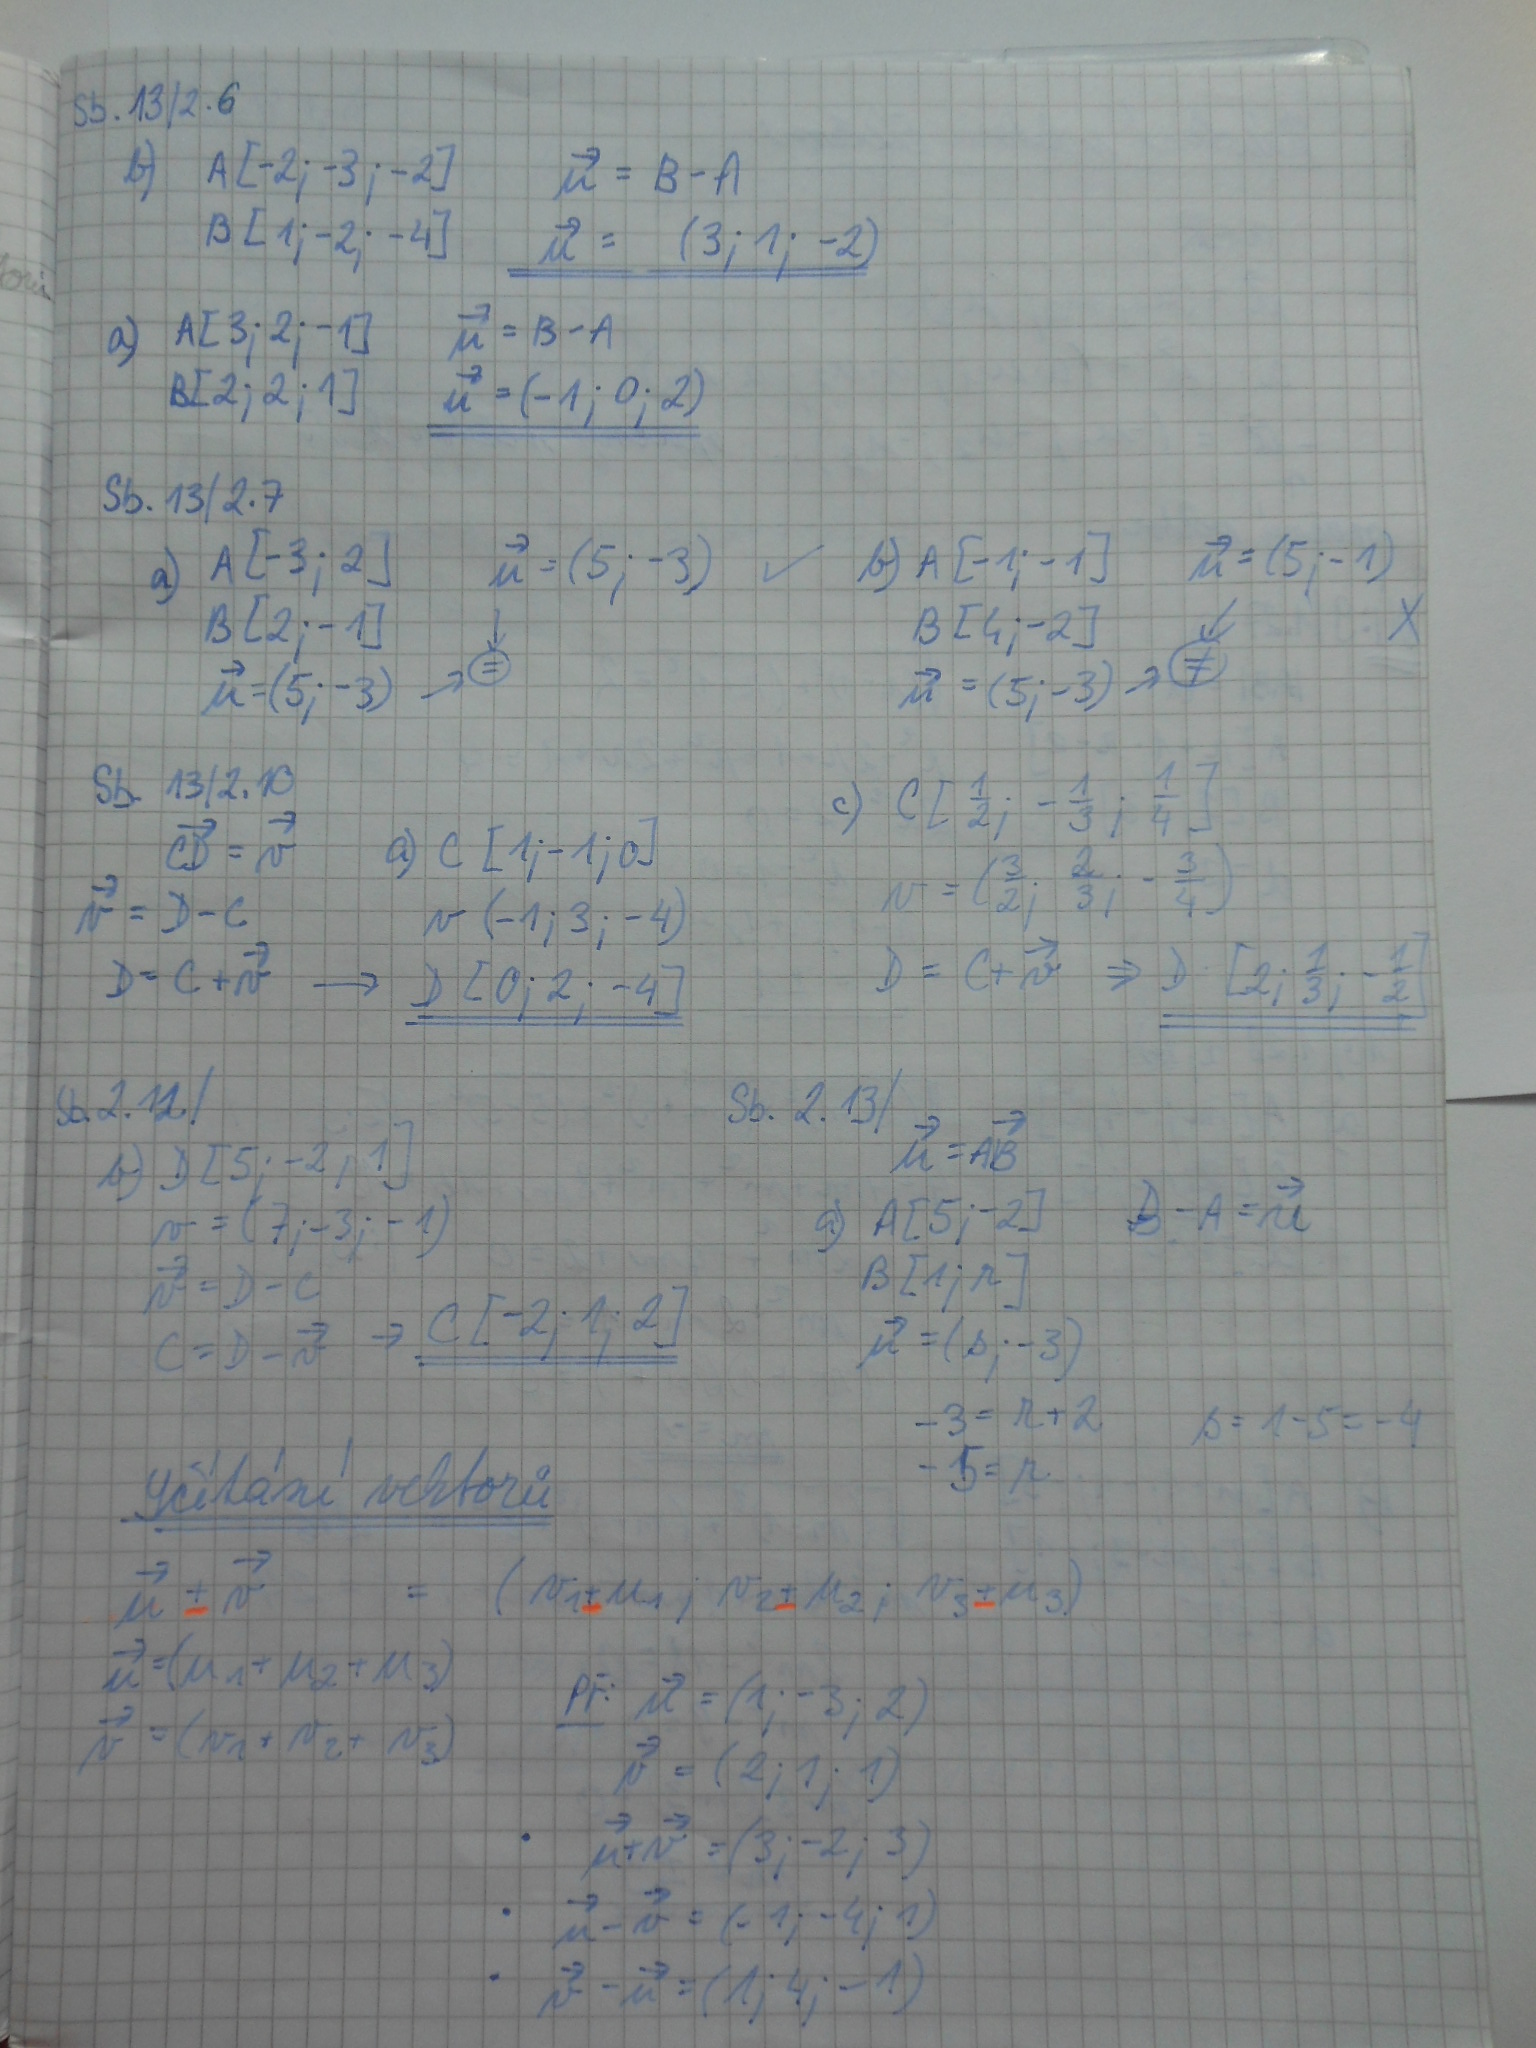 Sb. 13/2.6
b) A[-2; -3; -2] u⃗ = B-A
B[1; -2; -4] u⃗ = (3; 1; -2)
a) A[3; 2; -1] u⃗ = B-A
B[2; 2; 1] u⃗ = (-1; 0; 2)
Sb. 13/2.7
a) A[-3; 2] u⃗ = (5; -3) ✓
B[2; -1] ↓
u⃗ = (5; -3) → =
b) A[-1; -1] u⃗ = (5; -1)
B[4; -2] ↙ X
u⃗ = (5; -3) → ≠
Sb. 13/2.10
CD⃗ = v⃗
v⃗ = D-C
D = C+v⃗ →
a) C[1; -1; 0]
v (-1; 3; -4)
D[0; 2; -4]
c) C[1/2; -1/3; 1/4]
v = (3/2; 2/3; -3/4)
D = C+v⃗ ⇒ D [2; 1/3; -1/2]
Sb. 2.12/
b) D[5; -2; 1]
v = (7; -3; -1)
v⃗ = D-C
C = D-v⃗ → C[-2; 1; 2]
Sb. 2.13/
u⃗ = AB⃗
a) A[5; -2] B-A = u⃗
B[1; r]
u⃗ = (s; -3)
-3 = r+2 s = 1-5 = -4
-5 = r
sčítání vektorů
u⃗ ± v⃗ = (v₁±u₁; v₂±u₂; v₃±u₃)
u⃗ = (u₁+u₂+u₃)
v⃗ = (v₁+v₂+v₃)
Př: u⃗ = (1; -3; 2)
v⃗ = (2; 1; 1)
• u⃗+v⃗ = (3; -2; 3)
• u⃗-v⃗ = (-1; -4; 1)
• v⃗-u⃗ = (1; 4; -1)